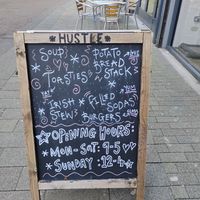 HUSTLE
SOUP
POTATO
BREAD
STACKS
TOASTIES
IRISH
STEW
FILLED
SODAS
BURGERS
OPENING HOURS:
MON-SAT: 9-5
SUNDAY: 12-4